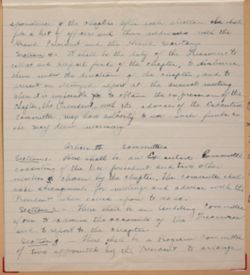 spondence of the chapter after each election she shall
file a list of officers and their addresses with the
Grand President and the Grand Secretary.
Section 6. It shall be the duty of the Treasurer to
collect and deposit funds of the chapter, to disburse
them under the direction of the chapter, and to
present an itemized report at the annual meeting
When it is impossible to obtain the expression of the
chapter, the President, with the advice of the Executive
Committee, may have authority to use such funds as
she may deem necessary.
Article Committees
Section 1. There shall be an Executive Committee
consisting of the Vice President and two other
members chosen by the chapter. This committee shall
make arrangements for meetings and advise with the
President when called upon to do so.
Section 2. There shall be a Auditing Committee
to examine the accounts of the Treasurer
and to report to the chapter.
Section There shall be a Program Committee
of two appointed by the President to arrange